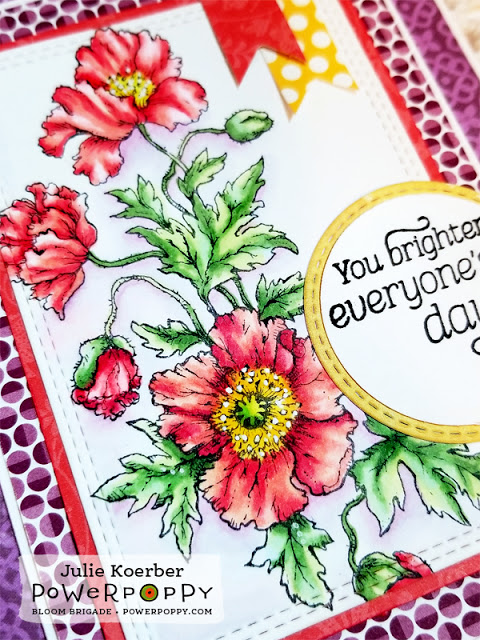 You brighten
everyone's
day
Julie Koerber
POWERPOPPY
BLOOM BRIGADE • POWERPOPPY.COM